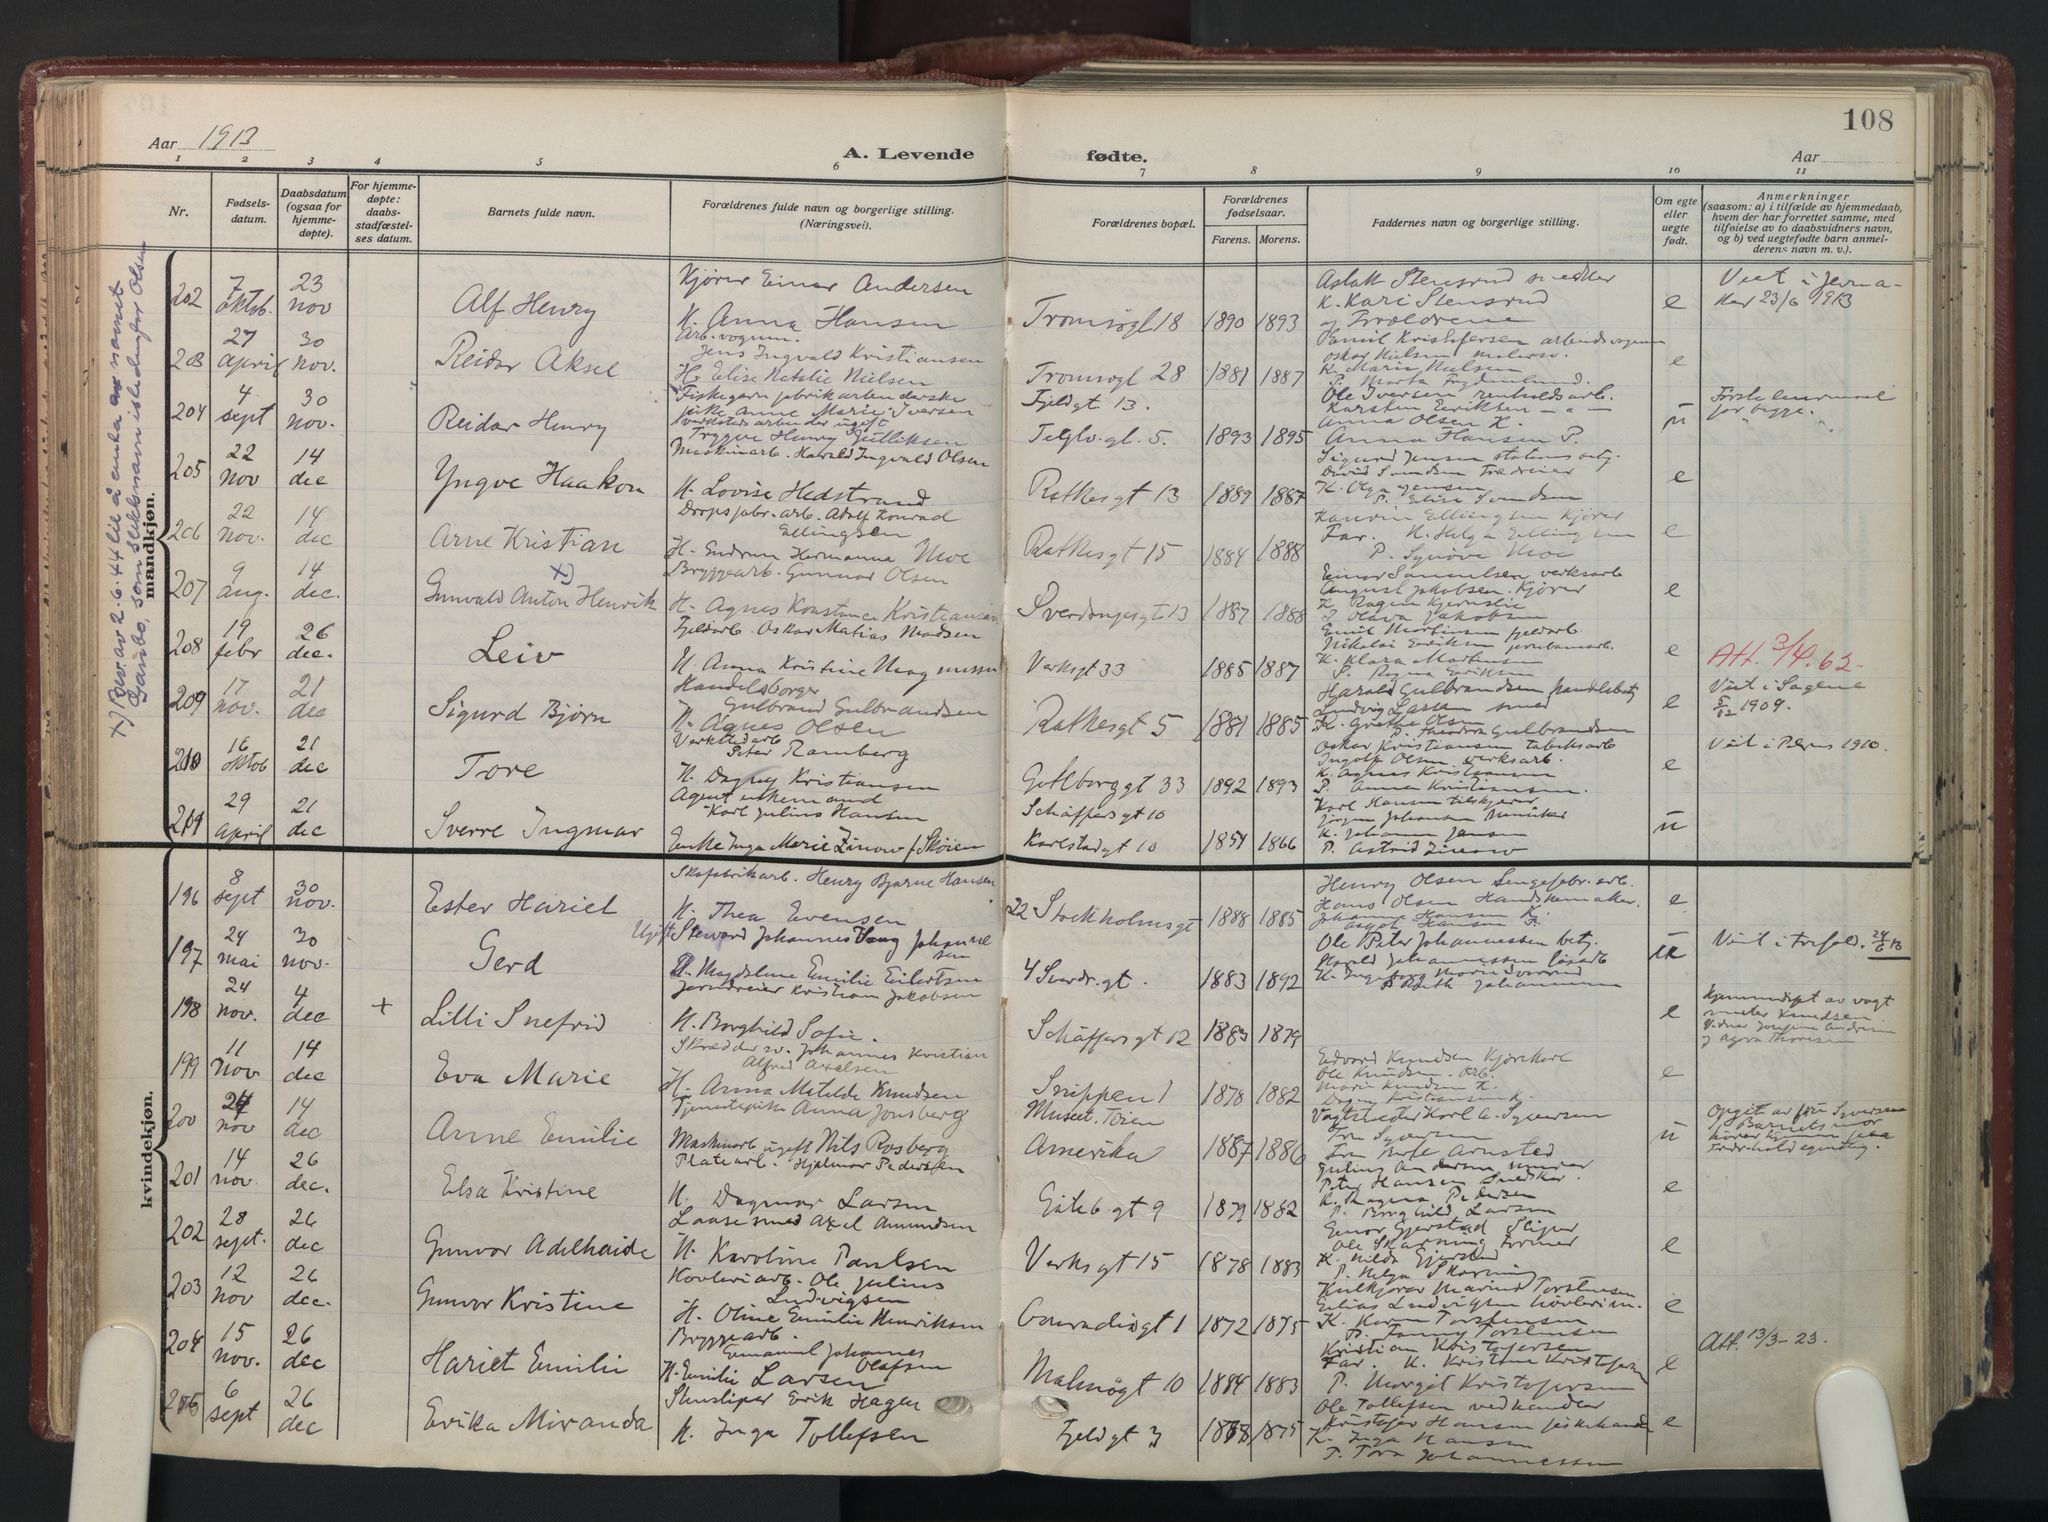 108
Aar 1913
A. Levende fødte.
Aar
1 2 3 4 5 6 7 8 9 10 11
Nr.
Fødsels-datum.
Daabsdatum (ogsaa for hjemme-døpte).
For hjemme-døpte: daabs-stadfæstel-ses datum.
Barnets fulde navn.
Forældrenes fulde navn og borgerlige stilling. (Næringsvei).
Forældrenes bopæl.
Forældrenes fødselsaar.
Farens. Morens.
Faddernes navn og borgerlige stilling.
Om egte eller uegte født.
Anmerkninger (saasom: a) i tilfælde av hjemmedaab, hvem der har forrettet samme, med tilføielse av to daabsvidners navn, og b) ved uegtefødte barn anmelderens navn m. v.).
x) Bev. av 2.6.44 til å anta navnet
Garibo, som slektsnavn istedenfor Olsen
mandkjøn.
202 7 oktob. 23 nov Alf Henry
Kjører Einar Andersen
H. Anna Hansen
Tromsøgt 18 1890 1893
Aslak Stensrud snedker
K. Kari Stensrud
og Forældrene
e
Viet i Jerna-
ker 23/6 1913
203 27 april 30 nov. Reidar Aksel
Arb. vognm.
Jens Ingvald Kristiansen
H. Elise Natalie Nielsen
Tromsøgt 28 1881 1887
Emil Kristofersen arbeidsvognm
Oskar Nielsen malersv.
K. Marie Nielsen
P. Marta
e
204 4 sept 30 nov. Reidar Henry
Fiskegarn fabrikarbeiderske
pike Anne Marie Iversen
verkstedsarbeider ugift
Trygve Henry Gulliksen
Fjeldgt. 13.
Teglv. gt. 5. 1893 1895
Ole Iversen renholdsarb.
Karsten Eriksen
Anna Olsen K.
Anna Hansen P.
u
Første
for begge.
205 22 nov 14 dec Yngve Haakon
Maskinarb. Harald Ingvald Olsen
H. Lovise Hedstrand
Rathkesgt 13 1889 1887
Sigurd Jensen stationsbetj.
David Svendsen Trædreier
K. Olga Jensen
P. Elise Svendsen
e
206 22 nov. 14 dec Arne Kristian
Dropsfabr. arb. Adolf Konrad
Ellingsen
H. Gudrun Hermanna Moe
Rathkesgt 15 1884 1888
Ellingsen Kjører
Far. K. Helga Ellingsen
P. Synøve Moe
e
207 9 aug. 14 dec. Gunvald Anton Henrik x)
Bryggearb. Gunnar Olsen
H. Agnes Konstance Kristiansen
Sverdrupsgt 13 1887 1888
Einar Samuelsen verksarb
August Jakobsen. Kjører
K. Ragna
P. Olava Jakobsen
e
208 19 febr 26 dec. Leiv
Fjeldarb. Oskar Matias Madsen
H. Anna Kristine Magnussen
Verksgt 33 1885 1887
Emil Martinsen fjeldarb
Nikolai Eriksen jernbanearb.
K. Klara Martinsen
P. Ragna Eriksen
e
Att. 3/4. 62-
209 17 nov. 21 dec Sigurd Bjørn
Handelsborger
Gulbrand Gulbrandsen
H. Agnes Olsen
Rathkesgt 5 1881 1885
Harald Gulbrandsen handelsbetj
Ludvig Larsen smed
K. Grethe Olsen
P. Theodora Gulbrandsen
e
Viet i Sagene
5/12 1909.
210 16 oktob 21 dec Tore
Verkstedarb
Peter Ramberg
H. Dagny Kristiansen
Gøtborggt 33 1892 1893
Oskar Kristiansen fabrikarb
Ingolf Olsen. verksarb.
K. Agnes Kristiansen
P. Anna Kristiansen.
e
Viet i Petrus 1910.
211 29 april 21 dec Sverre Ingmar
Agent enkemand
Karl Julius Hansen
Enke Inga Marie Zinow f. Skøien
Schäffersgt 10
Karlstadgt 10 1854 1866
Karl Hansen tilskjærer
Jørgen Johansen Musiker
K. Johanne Jensen
P. Astrid Zinow
u
kvindekjøn.
196 8 sept 30 nov. Ester Hariet
Skofabrikarb. Henry Bjarne Hansen
H. Thea Evensen
22 Stockholmsgt 1888 1885
Henry Olsen Sengefabr. arb.
Hans Olsen Handskemaker.
Johanne Hansen K.
Hansen P.
e
197 24 mai 30 nov. Gerd
Ugift Steward Johannes Johanne
sen
H. Magdalene Emilie Eilertsen
4 Sverdr. gt. 1883 1892
Ole Peter Johannessen betj.
Harald Johannessen
K. Ingeborg Marie
P. Ruth Johannessen
Viet i Trefold. 24/6 13
198 24 nov. 4 dec + Lilli Snefrid
Jerndreier Kristian Jakobsen
H. Borghild Sofie.
Schäffersgt 12 1883 1879
e
Hjemmedøpt av vagt
mester Knudsen.
Vidner Josefine Andersen
og Agva Thoresen
199 11 nov 14 dec Eva Marie
Skræddersv. Johannes Kristian
Alfred Axelsen
H. Anna Matilde Knudsen
Snippen 1 1878 1882
Edvard Knudsen Kjørekarl
Ole Knudsen. Arb.
Marie Knudsen K.
Dagny Kristiansen K.
e
200 24 nov 14 dec Anne Emilie
Tjenestepike Anna Jonsberg
Maskinarb ugift Nils Rosberg
Museet. Tøien
Amerika 1887 1886
Vagtmester Karl A. Syversen
Fru Syversen
Fru Arnsted
u
Opgit av fru Syversen
Barnets mor
hører hjemme paa
201 14 nov. 26 dec. Elsa Kristine
Platearb. Hjalmar Pedersen
H. Dagmar Larsen
Göteb. gt 9 1879 1882
Juling Andersen murer
Peter Hansen Snedker.
K. Ragna Pedersen
P. Borghild Larsen
e
202 28 sept. 26 dec Gunvor Adelhaide
Laasesmed Axel Amundsen
H. Karoline Paulsen
Verksgt 15 1878 1883
Einar Gjerstad Sliper
Ole Skarning Former
K. Hilda Gjerstad
P. Helga Skarning
e
203 12 nov 26 dec. Gunvor Kristine
Høvleriarb. Ole Julius
Ludvigsen
H. Oline Emilie Henriksen
Conradisgt 1 1872 1875
Kulkjører Marius Torstensen
Elias Ludvigsen høvleriarb.
K. Karen Torstensen
P. Fanny Torstensen
e
204 15 nov. 26 dec Hariet Emilie
Bryggearb.
Emanuel Johannes
Olafsen
H. Emilie Larsen
Malmøgt 10 1884 1883
Kristian Kristofersen
Far. K. Kristine Kristofersen
P. Margit Kristofersen
e
Att. 13/3-23.
205 6 sept 26 dec Erika Miranda
Stensliper Erik Hagen
H. Inga Tollefsen
Fjeldgt 3 1873 1875
Ole Tollefsen vedhandler
Kristofer Hansen fiskehandler
K. Inga Hansen
P. Tora Johannessen
e